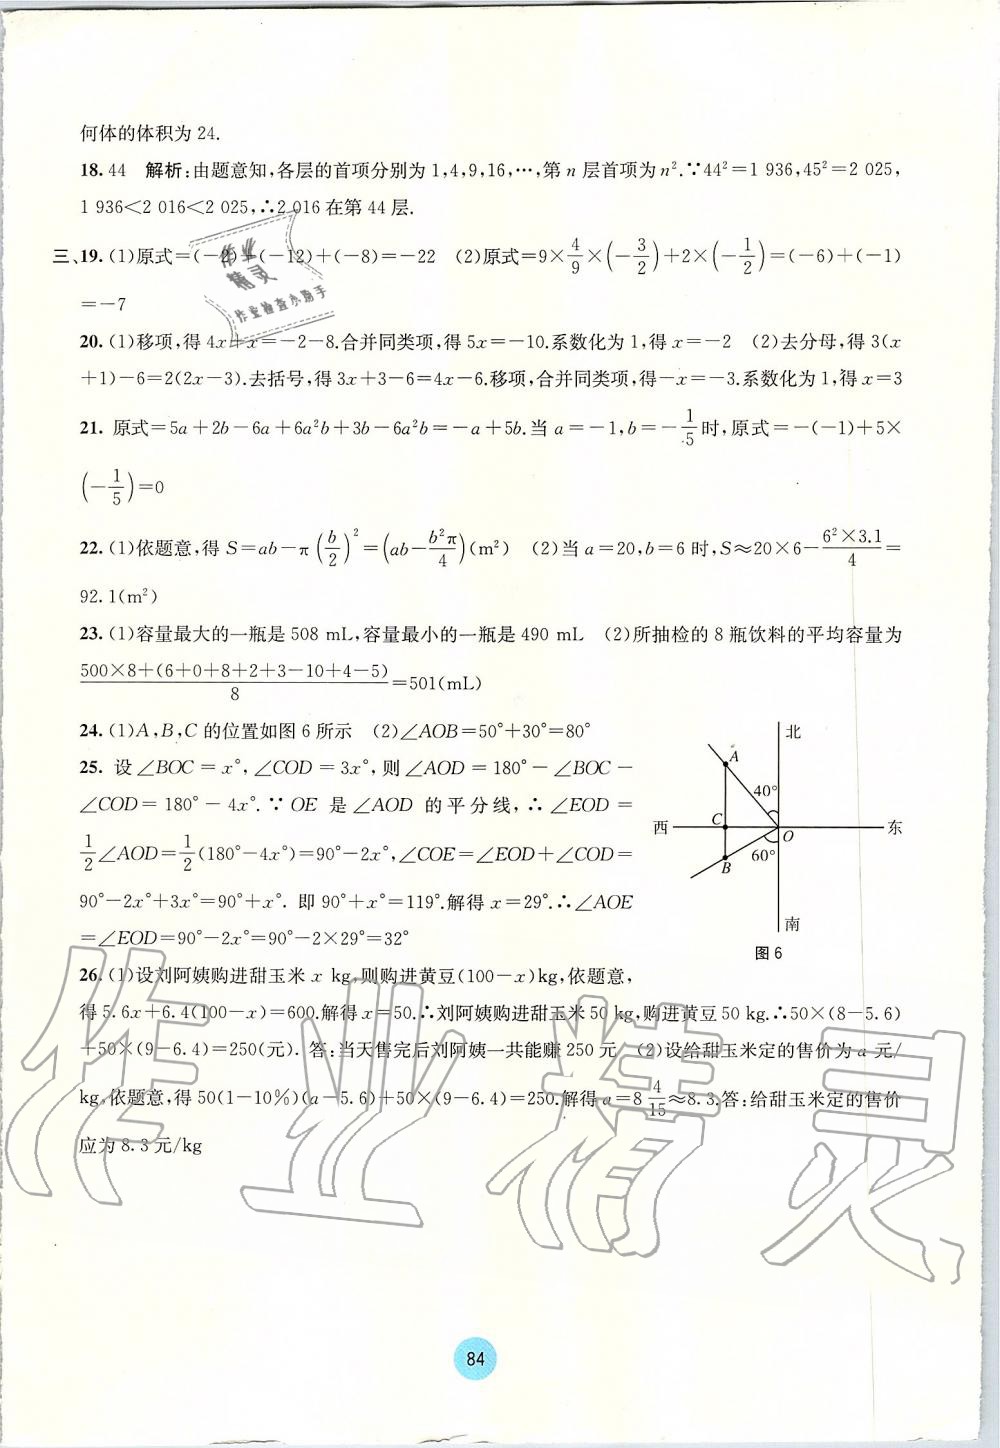 何体的体积为 24.
18. 44 解析:由题意知,各层的首项分别为 1,4,9,16,…,第 n 层首项为 n².∵44²=1 936,45²=2 025,
1 936<2 016<2 025,∴2 016 在第 44 层.
三、19. (1)原式=(-2)+(-12)+(-8)=-22 (2)原式=9×4/9×(-3/2)+2×(-1/2)=(-6)+(-1)
=-7
20. (1)移项,得 4x+x=-2-8.合并同类项,得 5x=-10.系数化为 1,得 x=-2 (2)去分母,得 3(x
+1)-6=2(2x-3).去括号,得 3x+3-6=4x-6.移项,合并同类项,得-x=-3.系数化为 1,得 x=3
21. 原式=5a+2b-6a+6a²b+3b-6a²b=-a+5b.当 a=-1,b=-1/5时,原式=-(-1)+5×
(-1/5)=0
22. (1)依题意,得 S=ab-π(b/2)²=(ab-b²π/4)(m²) (2)当 a=20,b=6 时,S≈20×6-6²×3.1/4=
92.1(m²)
23. (1)容量最大的一瓶是 508 mL,容量最小的一瓶是 490 mL (2)所抽检的 8 瓶饮料的平均容量为
500×8+(6+0+8+2+3-10+4-5)/8=501(mL)
24. (1)A,B,C 的位置如图 6 所示 (2)∠AOB=50°+30°=80°
25. 设∠BOC=x°,∠COD=3x°,则∠AOD=180°-∠BOC-
∠COD=180°-4x°.∵OE 是∠AOD 的平分线,∴∠EOD=
1/2∠AOD=1/2(180°-4x°)=90°-2x°,∠COE=∠EOD+∠COD=
90°-2x°+3x°=90°+x°. 即 90°+x°=119°.解得 x=29°.∴∠AOE
=∠EOD=90°-2x°=90°-2×29°=32°
北
A
40°
西
C
O
东
B
60°
南
图 6
26. (1)设刘阿姨购进甜玉米 x kg,则购进黄豆(100-x)kg,依题意,
得 5.6x+6.4(100-x)=600.解得 x=50.∴刘阿姨购进甜玉米 50 kg,购进黄豆 50 kg.∴50×(8-5.6)
+50×(9-6.4)=250(元). 答:当天售完后刘阿姨一共能赚 250 元 (2)设给甜玉米定的售价为 a 元/
kg,依题意,得 50(1-10%)(a-5.6)+50×(9-6.4)=250.解得 a=8 4/15≈8.3.答:给甜玉米定的售价
应为 8.3 元/kg
作业
精灵
作业检查小助手
作业精灵
84